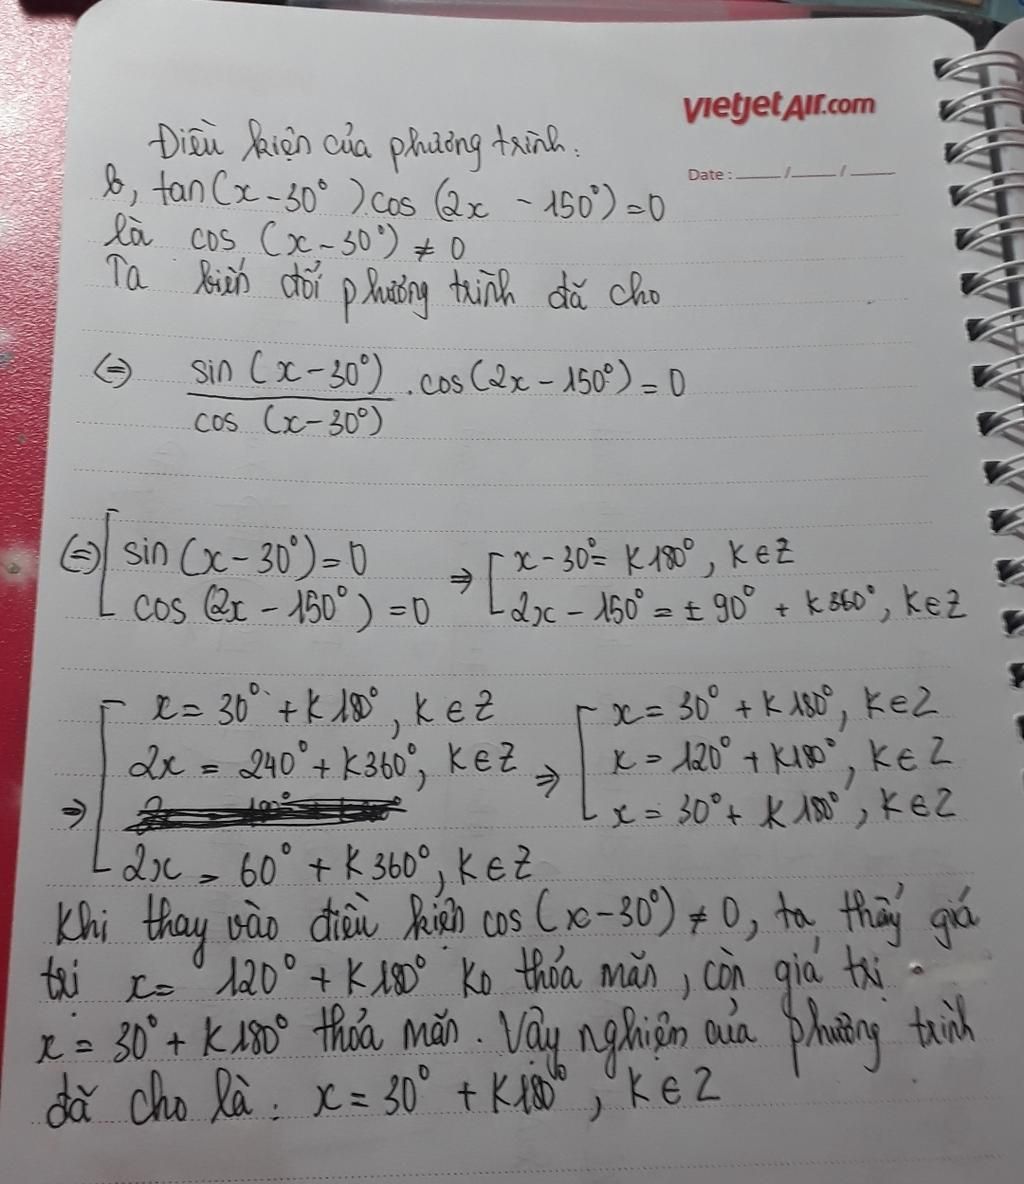 vietjetAir.com
Date : ___/___/___
Điều kiện của phương trình:
b, tan(x-30°).cos(2x - 150°)=0
là cos (x-30°) ≠ 0
Ta biến đổi phương trình đã cho
⇔ sin(x-30°)/cos(x-30°) . cos(2x-150°)=0
⇔ [ sin(x-30°)=0 ⇒ [ x-30°= K180°, K∈Z
cos(2x-150°)=0 2x-150°= ± 90° + K360°, K∈Z
⇒ [ x= 30° + K180°, K∈Z ⇒ [ x= 30° + K180°, K∈Z
2x = 240° + K360°, K∈Z x = 120° + K180°, K∈Z
2x = 60° + K360°, K∈Z x = 30° + K180°, K∈Z
Khi thay vào điều kiện cos(x-30°) ≠ 0, ta thấy giá
trị x= 120° + K180° ko thỏa mãn, còn giá trị
x = 30° + K180° thỏa mãn. Vậy nghiện của phương trình
đã cho là: x = 30° + K180°, K∈Z